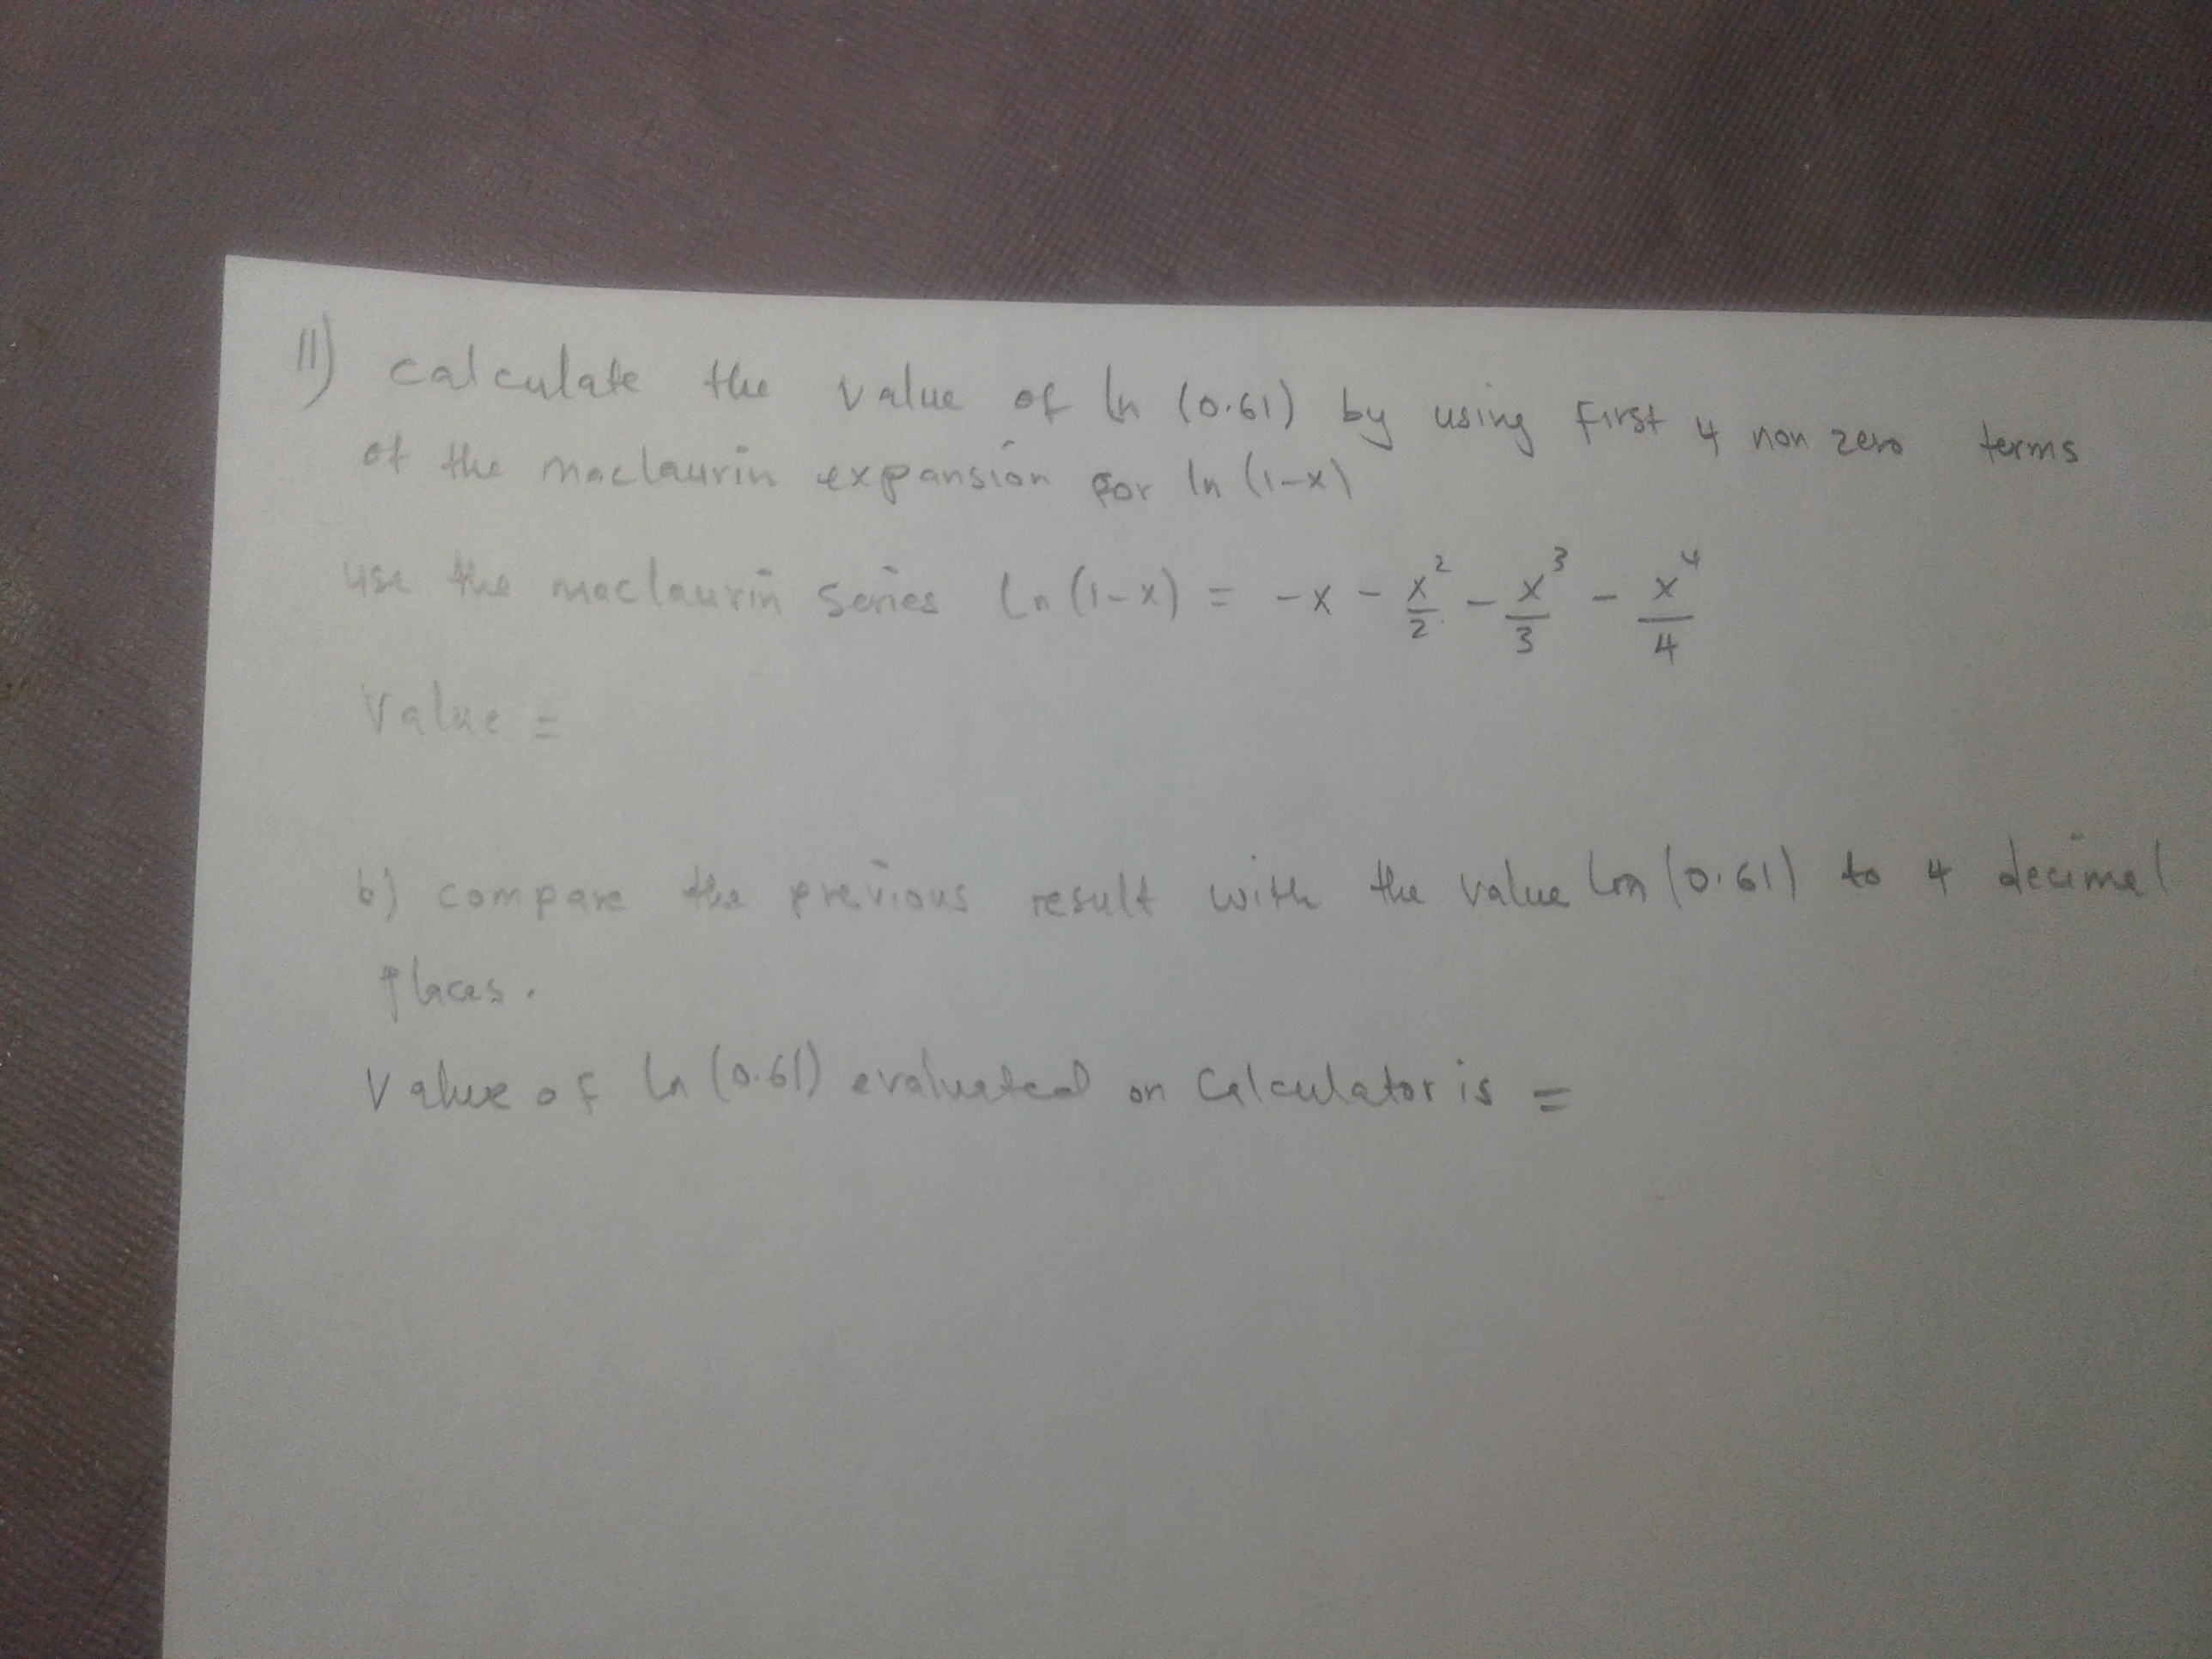 11) calculate the value of ln (0.61) by using first 4 non zero terms
of the maclaurin expansion for ln (1-x)
use the maclaurin series Ln (1-x) = -x - x²/2 - x³/3 - x⁴/4
Value =
b) compare the previous result with the value Ln (0.61) to 4 decimal
places.
Value of Ln (0.61) evaluated on Calculator is =